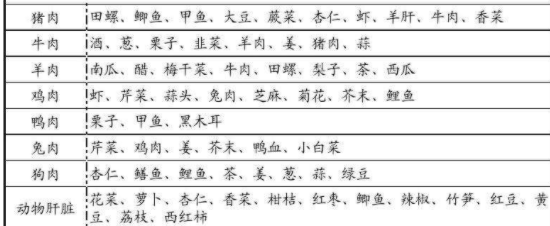 猪肉 田螺、鲫鱼、甲鱼、大豆、蕨菜、杏仁、虾、羊肝、牛肉、香菜
牛肉 酒、葱、栗子、韭菜、羊肉、姜、猪肉、蒜
羊肉 南瓜、醋、梅干菜、牛肉、田螺、梨子、茶、西瓜
鸡肉 虾、芹菜、蒜头、兔肉、芝麻、菊花、芥末、鲤鱼
鸭肉 栗子、甲鱼、黑木耳
兔肉 芹菜、鸡肉、姜、芥末、鸭血、小白菜
狗肉 杏仁、鳝鱼、鲤鱼、茶、姜、葱、蒜、绿豆
动物肝脏 花菜、萝卜、杏仁、香菜、柑桔、红枣、鲫鱼、辣椒、竹笋、红豆、黄
豆、荔枝、西红柿